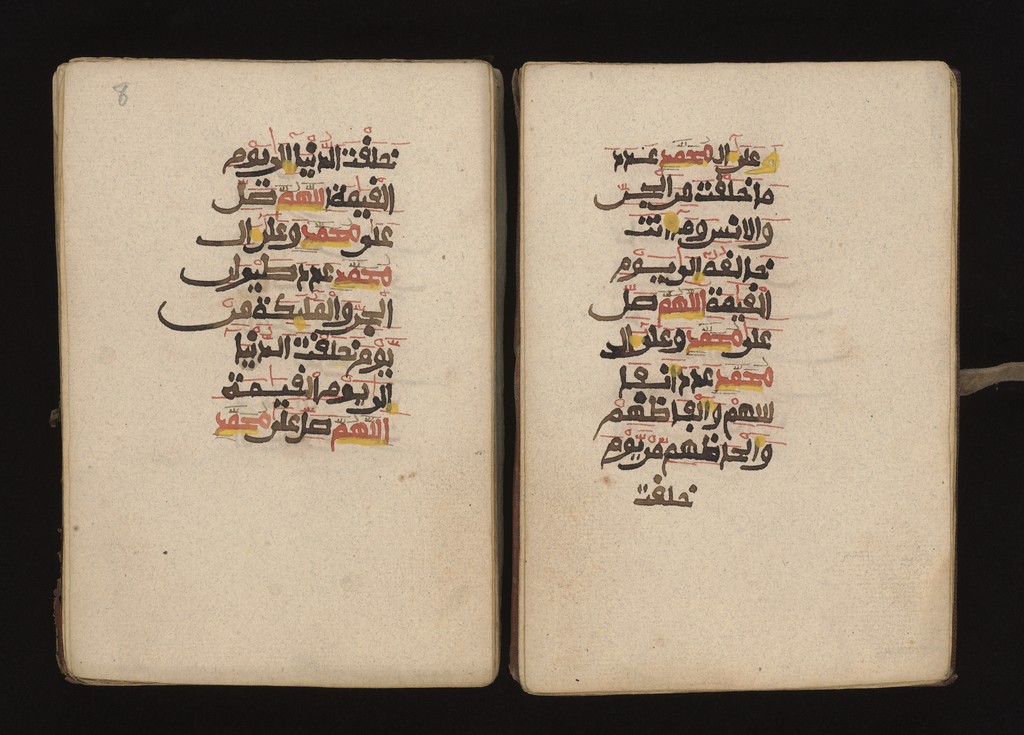 وعلى ال محمد عدد
ما خلقت من الجن
والانس وما انت
خالفه الى يوم
القيمة اللهم صل
على محمد وعلى ال
محمد عدد انفا
سهم والفاظهم
والحاظهم من يوم
خلقت
خلقت الدنيا الى يوم
القيمة اللهم صل
على محمد وعلى ال
محمد عدد طيران
الجن والمليكة من
يوم خلقت الدنيا
الى يوم القيمة
اللهم صل على محمد
8